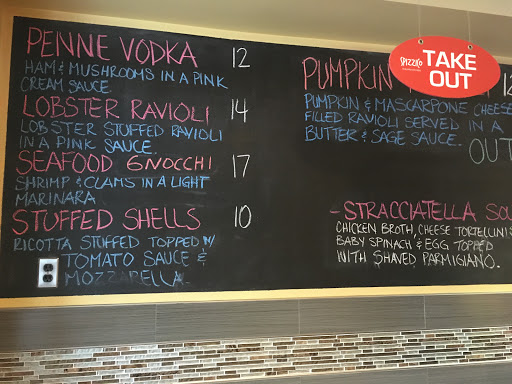 PENNE VODKA 12
HAM & MUSHROOMS IN A PINK
CREAM SAUCE
LOBSTER RAVIOLI 14
LOBSTER STUFFED RAVIOLI
IN A PINK SAUCE.
SEAFOOD GNOCCHI 17
SHRIMP & CLAMS IN A LIGHT
MARINARA
STUFFED SHELLS 10
RICOTTA STUFFED TOPPED W/
TOMATO SAUCE &
MOZZARELLA.
PUMPKIN 12
PUMPKIN & MASCARPONE CHEESE
FILLED RAVIOLI SERVED IN A
BUTTER & SAGE SAUCE.
OUT
- STRACCIATELLA SOU
CHICKEN BROTH, CHEESE TORTELLINIS
BABY SPINACH & EGG TOPPED
WITH SHAVED PARMIGIANO.
TAKE
OUT